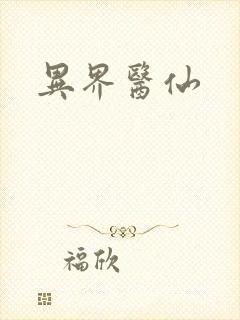 異界醫仙
福欣